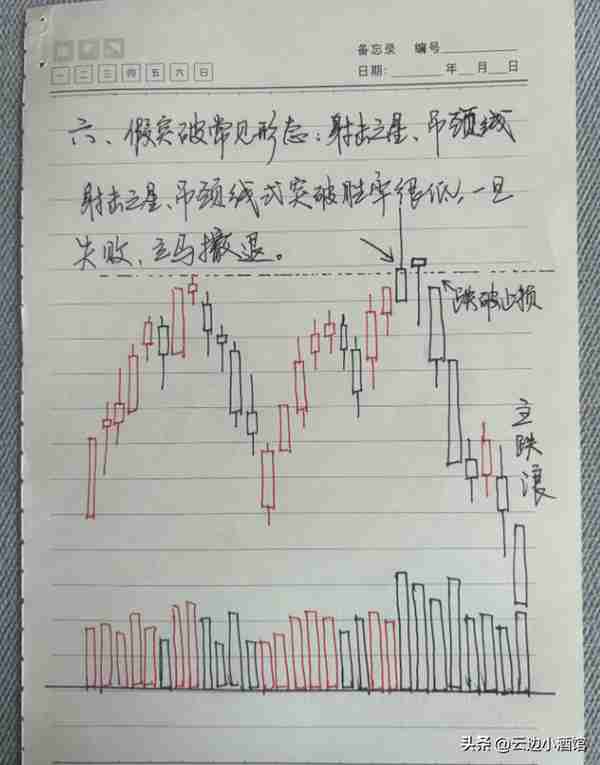 备忘录 编号
一 二 三 四 五 六 日
日期: 年 月 日
六、假突破常见形态：射击之星、吊颈线
射击之星、吊颈线式突破胜率很低，一旦
失败，立马撤退。
跌破止损
主跌浪
头条 @云边小酒馆